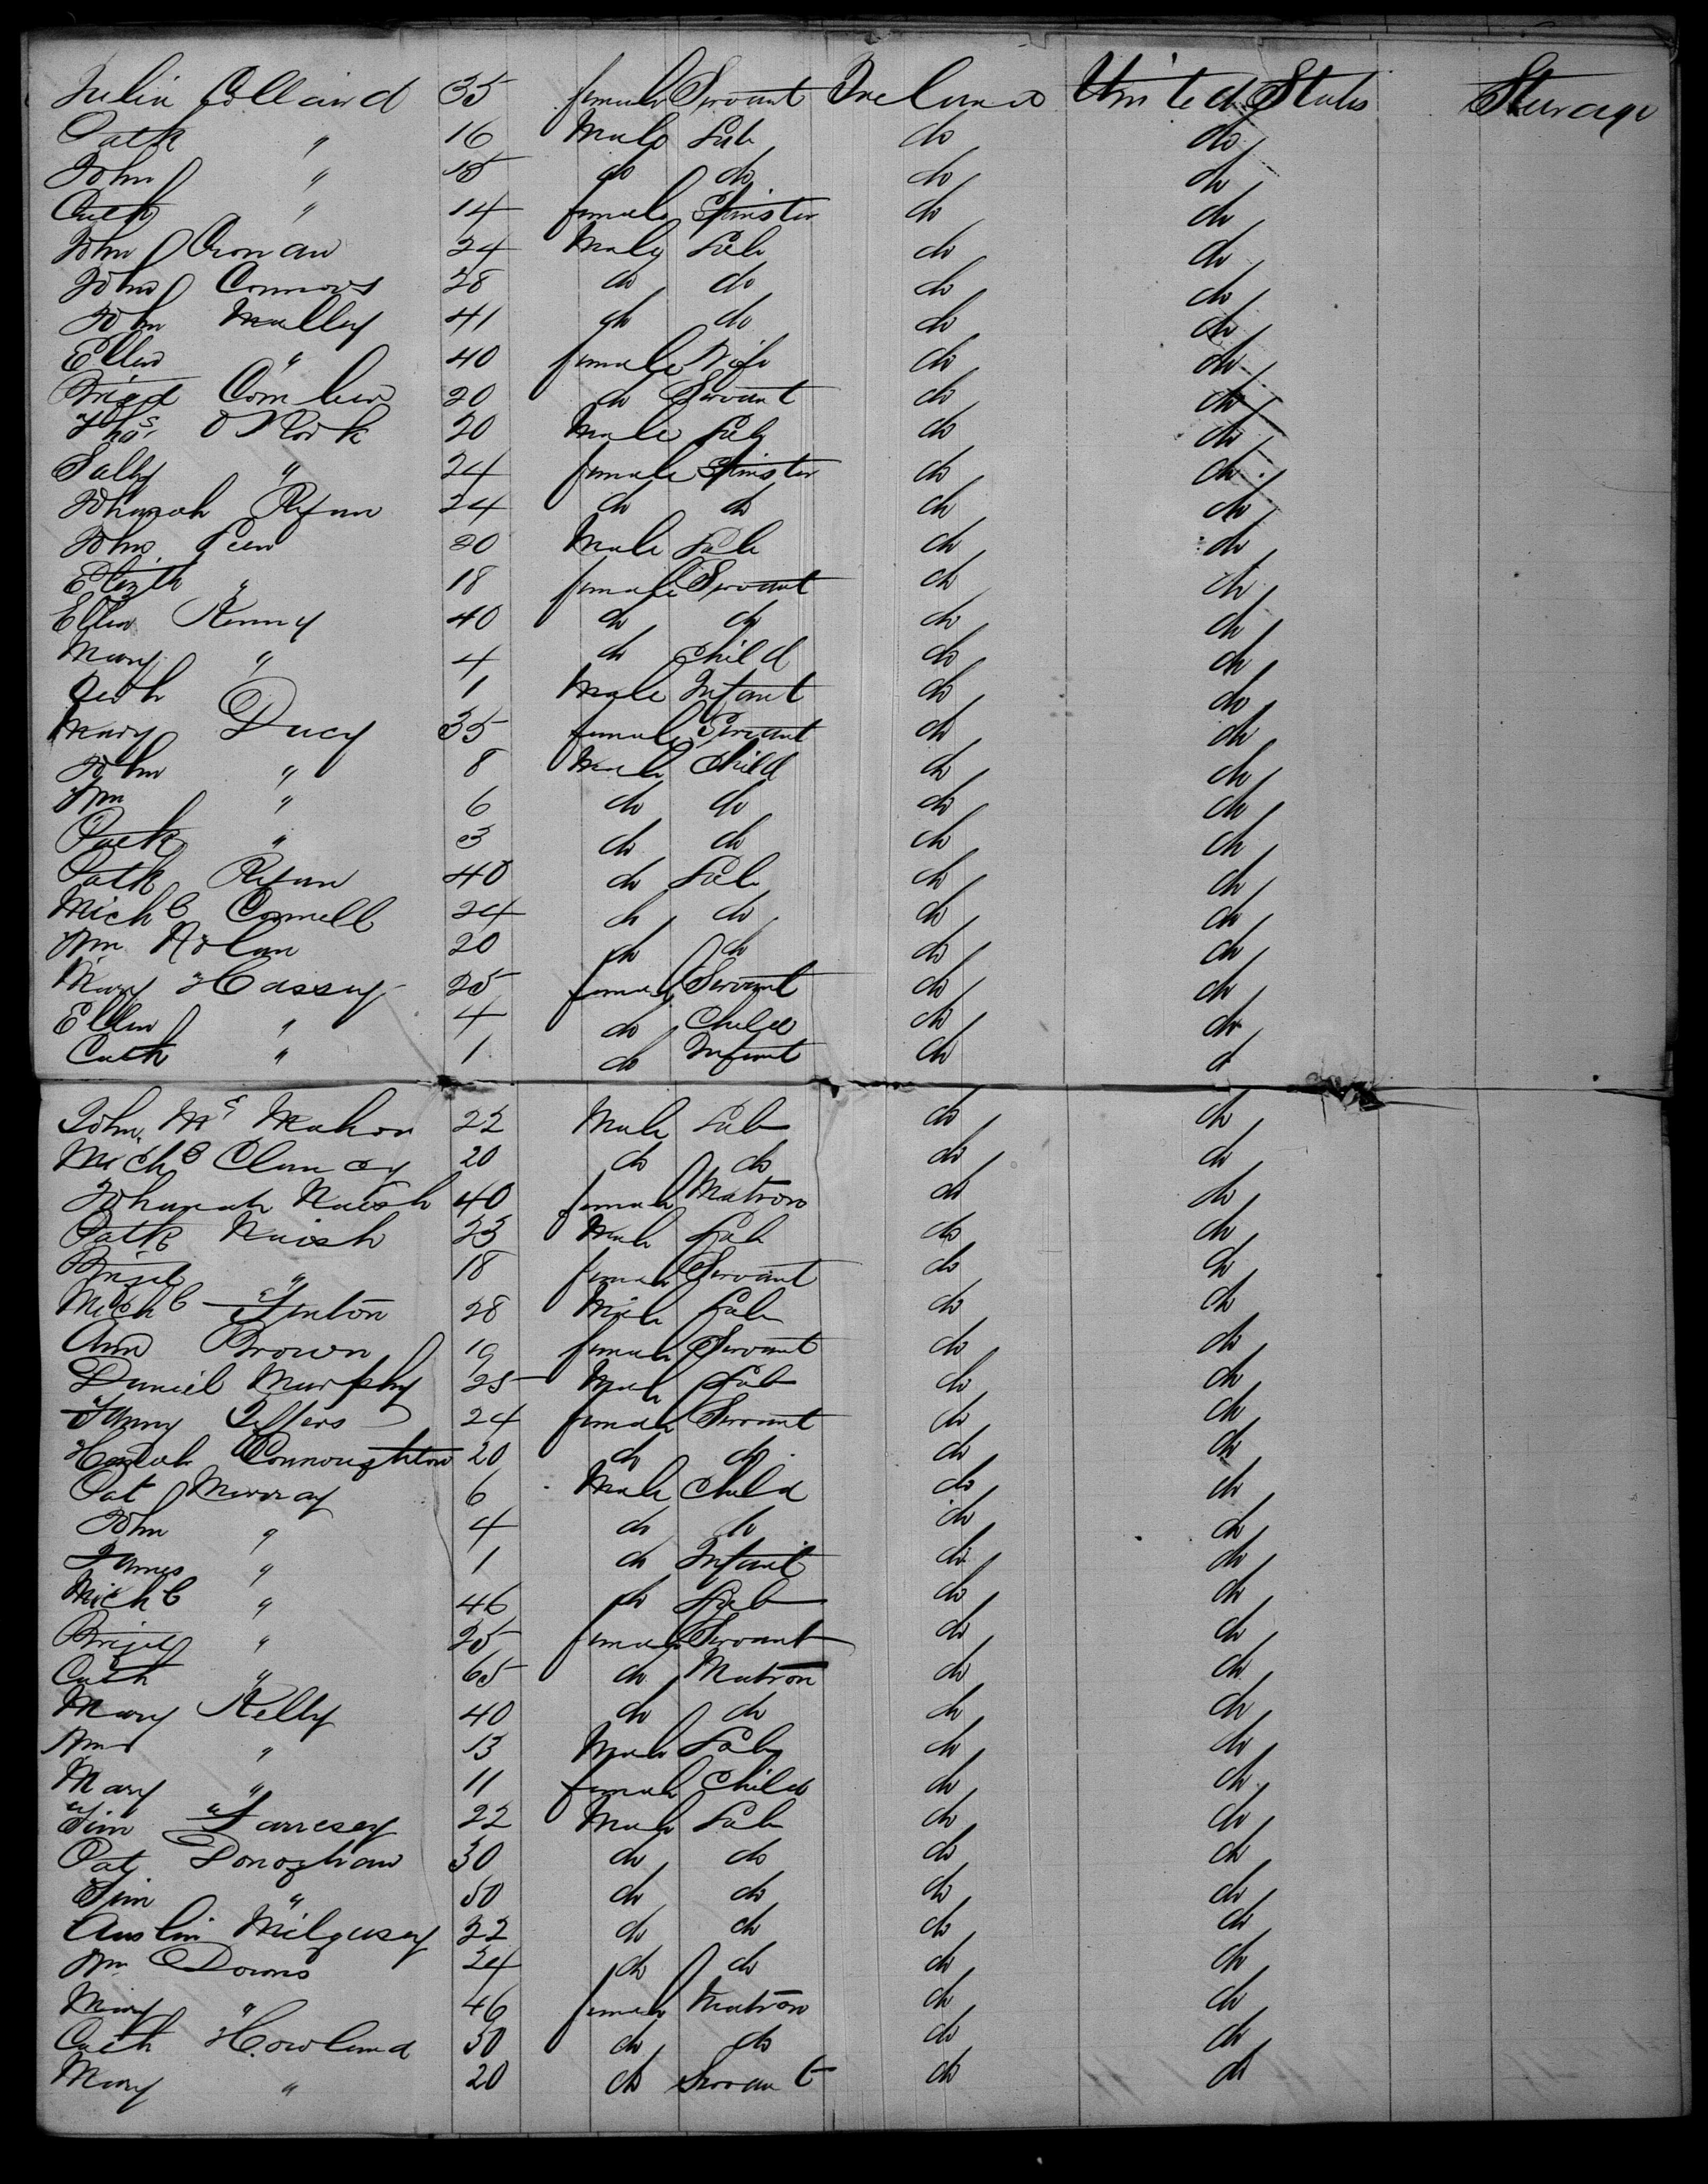 Julia Colland 35 female Servant Ireland United States Steerage
Patk " 16 Male Lab do do
John " 15 do do do do
Cath " 14 female Spinster do do
John Cronan 24 Male Lab do do
John Connors 28 do do do do
John Mulley 41 do do do do
Ellen " 40 female Wife do do
Briget Comber 20 do Servant do do
Thos. O Rork 20 Male Lab do do
Sally " 24 female Spinster do do
Johanah Ryan 24 do do do do
John Leen 20 Male Lab do do
Elizth " 18 female Servant do do
Ellen Kenny 40 do do do do
Mary " 4 do Child do do
1 Male Infant do do
Mary Ducy 35 female Servant do do
John " 8 Male Child do do
Wm " 6 do do do do
Patk " 3 do do do do
Patk Ryan 40 do Lab do do
Michl Connell 24 do do do do
Wm Nolan 20 do do do do
Mary Hassey 25 female Servant do do
Ellen " 4 do Child do do
Cath " 1 do Infant do d
John Mc Mahon 22 Male Lab do do
Michl Clancy 20 do do do do
Johanah Naish 40 female Matron do do
Patk Naish 23 Male Lab do do
Briget " 18 female Servant do do
Michl Finton 28 Male Lab do do
Ann Brown 19 female Servant do do
Daniel Murphy 25 Male Lab do do
Fanny Jeffers 24 female Servant do do
Connoughton 20 do do do do
Pat Murray 6 Male Child do do
John " 4 do do do do
James " 1 do Infant do do
Michl " 46 do Lab do do
Briget " 25 female Servant do do
Cath " 65 do Matron do do
Mary Kelly 40 do do do do
Wm " 13 Male Lab do do
Mary " 11 female Child do do
Tim Farresey 22 Male Lab do do
Pat Donoghan 30 do do do do
Tim " 50 do do do do
Austin 22 do do do do
Wm Downs 24 do do do do
Mary " 46 female Matron do do
Cath Howland 50 do do do do
Mary " 20 do Servant do do